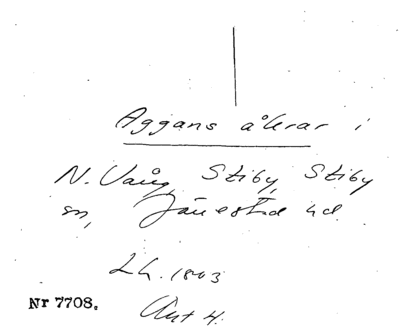 Aggans åkrar i
N. Vång, Stiby, Stiby
sn, Järrestad hd.
LH. 1803
Akt 4.
Nr 7708.